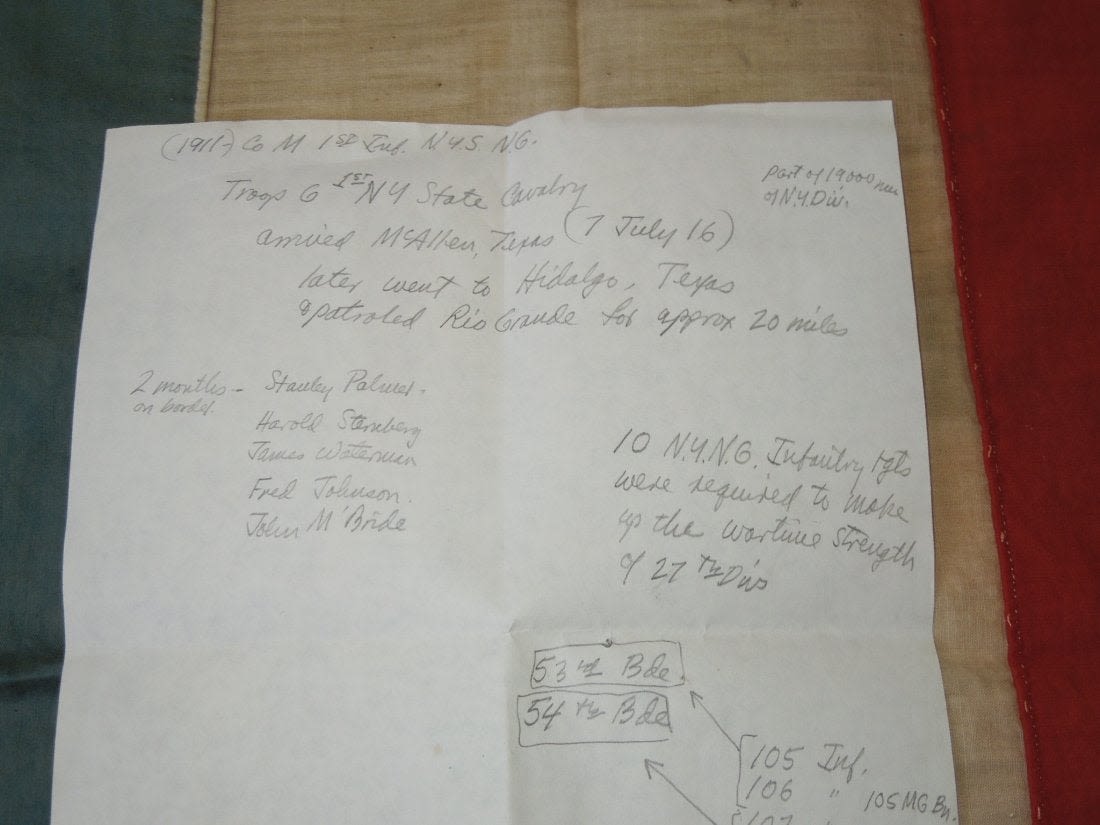 (1911-) Co M 1ST Inf. N.Y.S. NG.
Troops G 1ST NY State Cavalry
part of 19000 men
of N.Y. Div.
arrived McAllen, Texas (7 July 16)
later went to Hidalgo, Texas
& patroled Rio Grande for approx 20 miles
2 months -
on border.
Stanley Palmer.
Harold Sternberg
James Waterman
Fred Johnson.
John M'Bride
10 N.Y.N.G. Infantry rgts
were required to make
up the wartime strength
of 27TH Div
53rd Bde.
54TH Bde
105 Inf.
106 "
105 MG Bn.
107